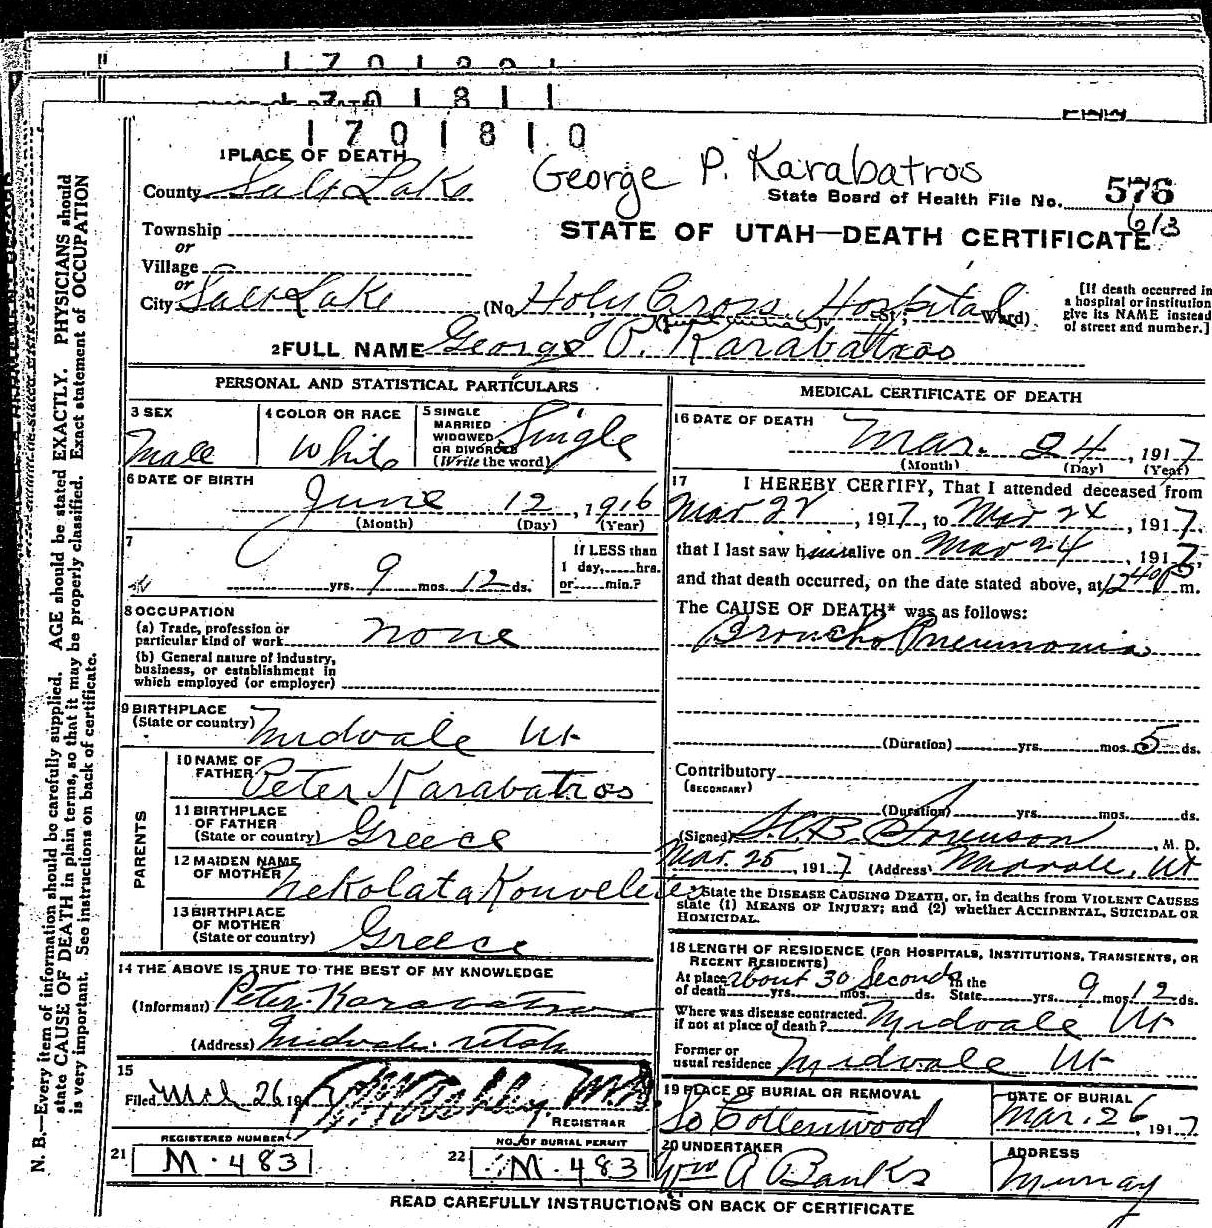 1701810
1 PLACE OF DEATH
George P. Karabatros
County Salt Lake
State Board of Health File No. 576
613
Township
STATE OF UTAH—DEATH CERTIFICATE
or
Village
or
City Salt Lake (No. Holy Cross Hospital St.; Ward)
[If death occurred in
a hospital or institution
give its NAME instead
of street and number.]
2 FULL NAME George P. Karabatros
PERSONAL AND STATISTICAL PARTICULARS
3 SEX
Male
4 COLOR OR RACE
White
5 SINGLE
MARRIED
WIDOWED
OR DIVORCED
(Write the word)
Single
6 DATE OF BIRTH
June 12, 1916
(Month) (Day) (Year)
7
yrs. 9 mos. 12 ds.
If LESS than
1 day, hrs.
or min.?
8 OCCUPATION
(a) Trade, profession or
particular kind of work none
(b) General nature of industry,
business, or establishment in
which employed (or employer)
9 BIRTHPLACE
(State or country) Midvale Ut
PARENTS
10 NAME OF
FATHER Peter Karabatros
11 BIRTHPLACE
OF FATHER
(State or country) Greece
12 MAIDEN NAME
OF MOTHER
13 BIRTHPLACE
OF MOTHER
(State or country) Greece
14 THE ABOVE IS TRUE TO THE BEST OF MY KNOWLEDGE
(Informant) Peter Karabatros
(Address) Midvale Utah
15
Filed Mch 26 191
REGISTRAR
REGISTERED NUMBER
21 M.483
NO. OF BURIAL PERMIT
22 M.483
MEDICAL CERTIFICATE OF DEATH
16 DATE OF DEATH
Mar. 24, 1917
(Month) (Day) (Year)
17 I HEREBY CERTIFY, That I attended deceased from
Mar 22, 1917, to Mar 24, 1917.
that I last saw him alive on Mar 24, 1917,
and that death occurred, on the date stated above, at 1240 P m.
The CAUSE OF DEATH* was as follows:
Broncho Pneumonia
(Duration) yrs. mos. 5 ds.
Contributory
(SECONDARY)
(Duration) yrs. mos. ds.
(Signed) Sorenson, M. D.
Mar. 25, 1917 (Address) Midvale, Ut
*State the DISEASE CAUSING DEATH, or, in deaths from VIOLENT CAUSES
state (1) MEANS OF INJURY; and (2) whether ACCIDENTAL, SUICIDAL OR
HOMICIDAL.
18 LENGTH OF RESIDENCE (FOR HOSPITALS, INSTITUTIONS, TRANSIENTS, OR
RECENT RESIDENTS)
At place about 30 Seconds In the
of death yrs. mos. ds. State yrs. 9 mos. 12 ds.
Where was disease contracted.
if not at place of death? Midvale Ut
Former or
usual residence Midvale Ut
19 PLACE OF BURIAL OR REMOVAL
So Cottenwood
DATE OF BURIAL
Mar. 26, 1917
20 UNDERTAKER
Wm A Banks
ADDRESS
Murray
READ CAREFULLY INSTRUCTIONS ON BACK OF CERTIFICATE
N. B.—Every item of information should be carefully supplied. AGE should be stated EXACTLY. PHYSICIANS should
state CAUSE OF DEATH in plain terms, so that it may be properly classified. Exact statement of OCCUPATION
is very important. See instructions on back of certificate.